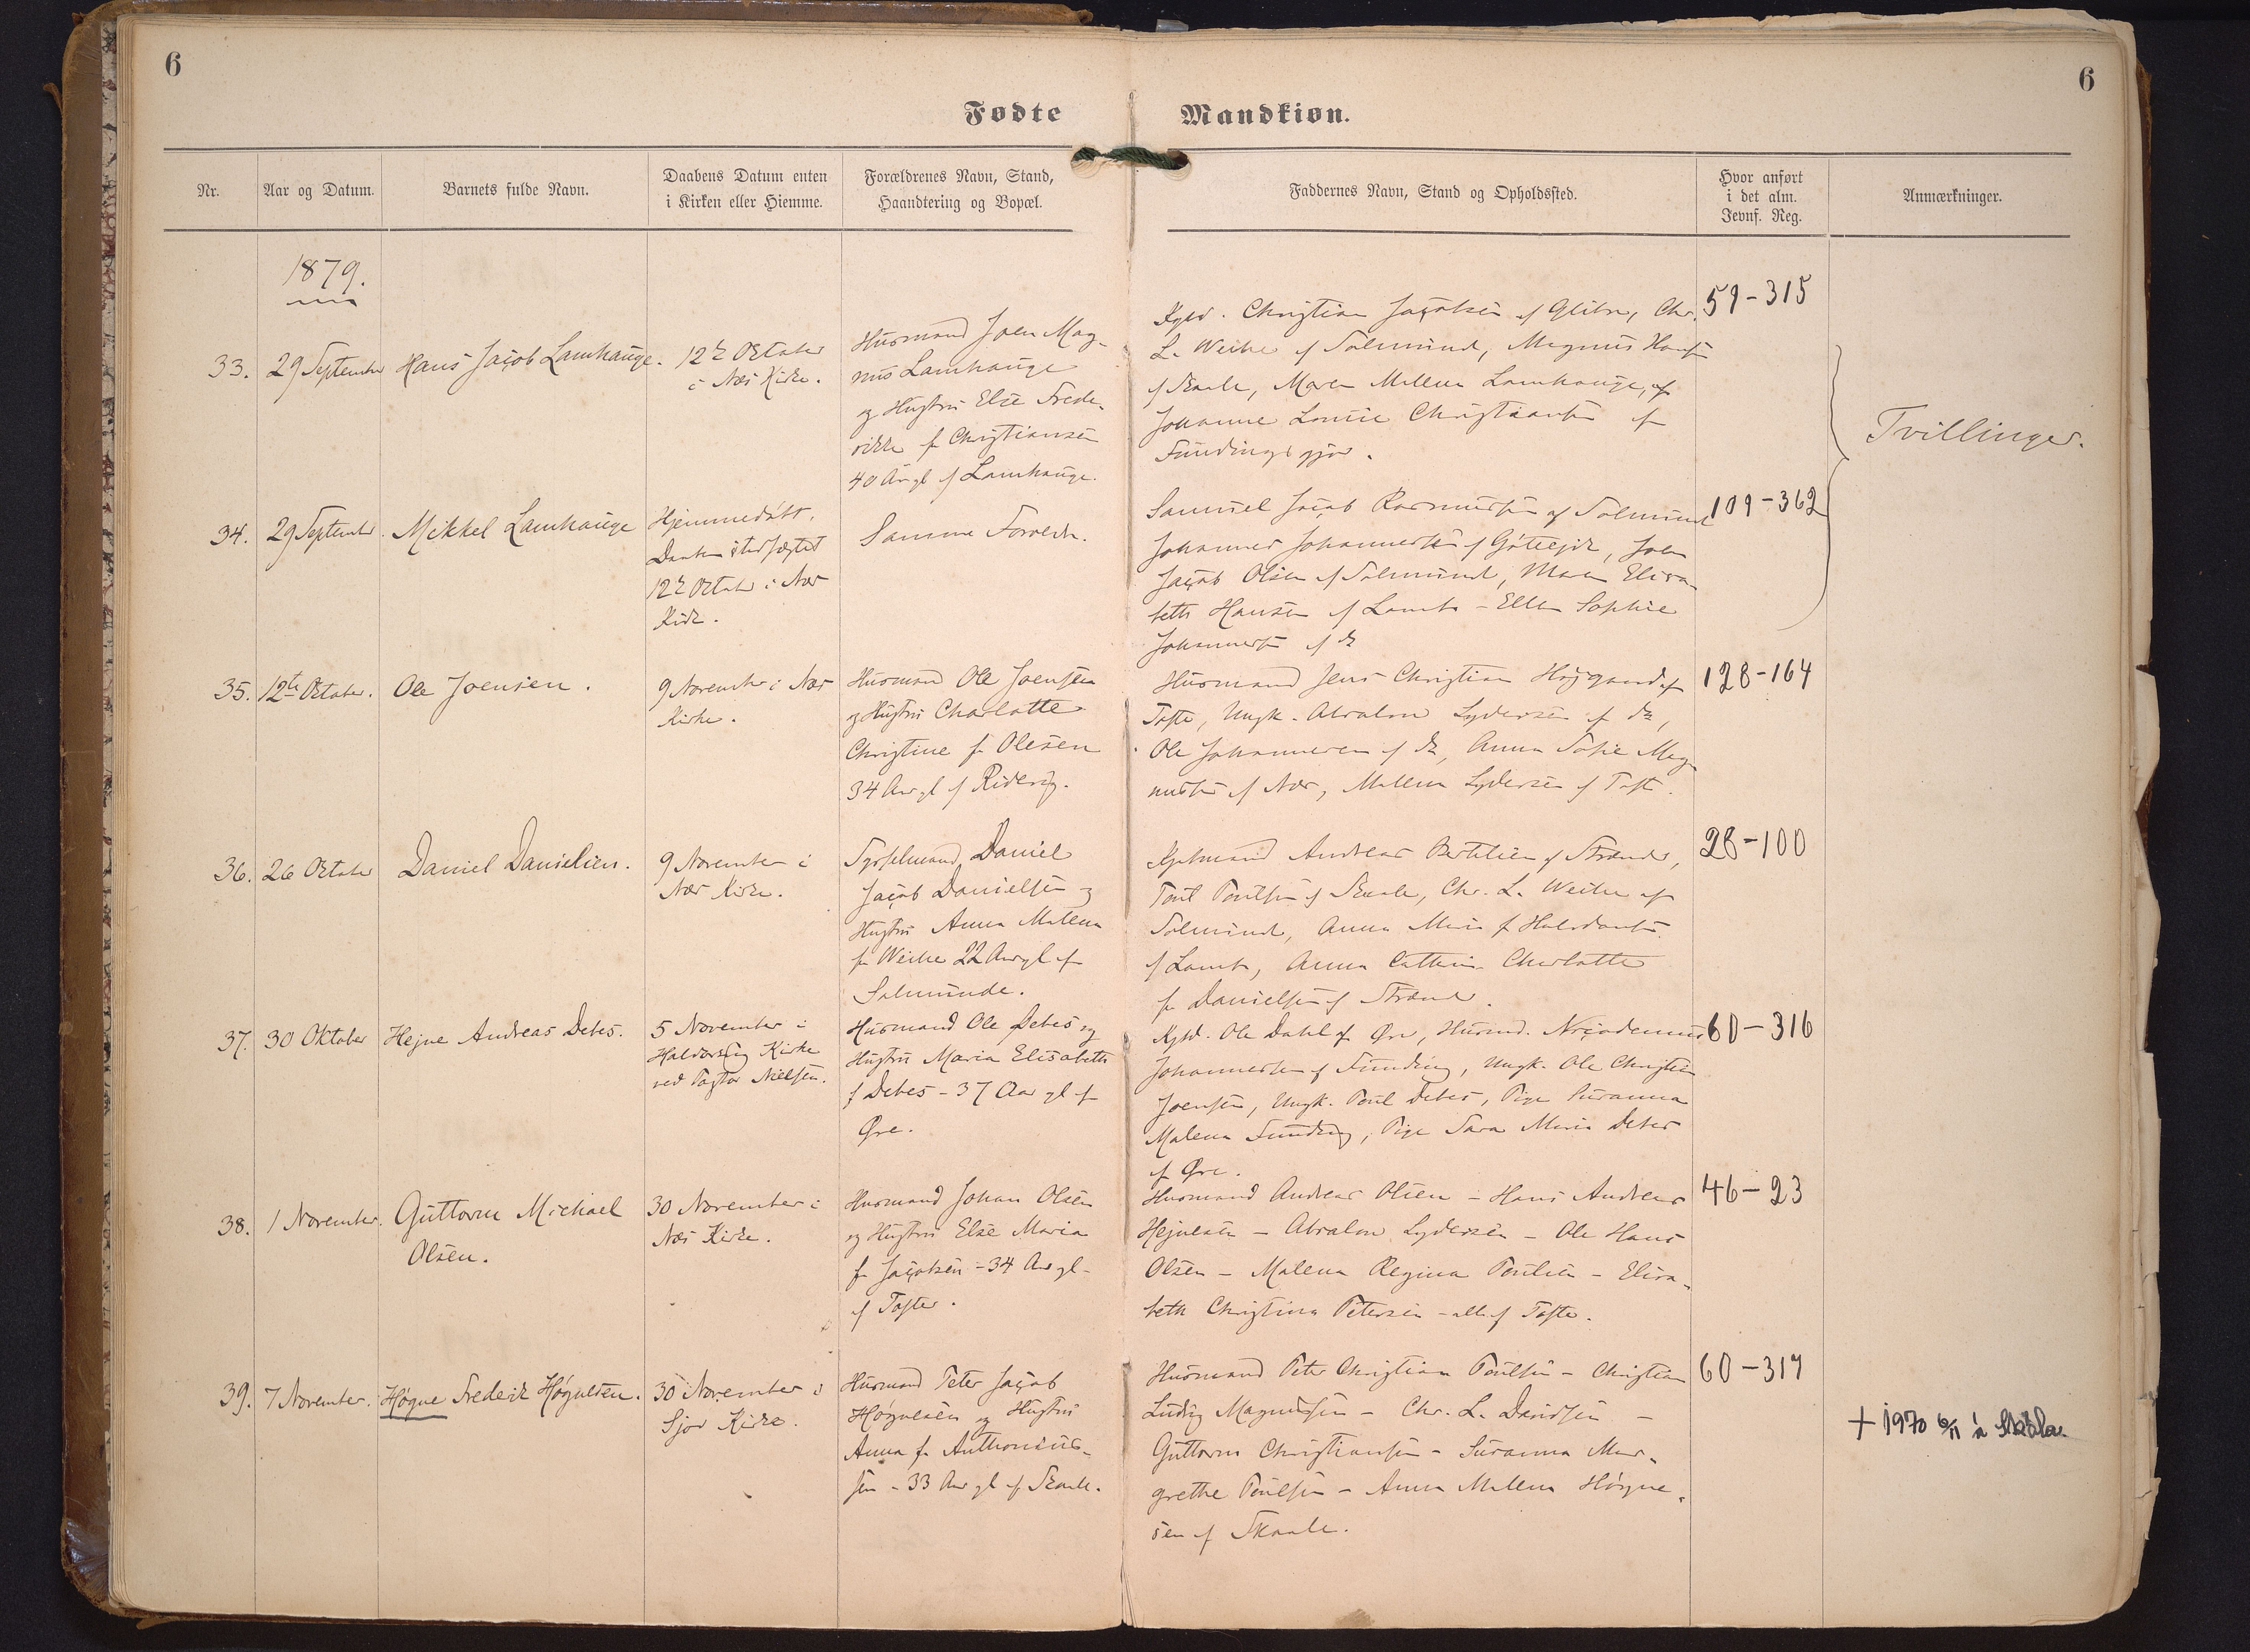 6
6
Fødte Mandkiøn.
Nr.
Aar og Datum.
Barnets fulde Navn.
Daabens Datum enten
i Kirken eller Hiemme.
Forældrenes Navn, Stand,
Haandtering og Bopæl.
Faddernes Navn, Stand og Opholdssted.
Hvor anført
i det alm.
Jevnf. Reg.
Anmærkninger.
1879.
33.
29 September
Hans Jacob Lamhauge.
12te Oktober
i Næs Kirke.
Husmand Joen Mag-
nus Lamhauge
og Hustru Else Frede-
rikke f. Christiansen
40 Aar gl. af Lamhauge.
Christian Jacobsen af Glibre, Chr.
L. Weihe af Solmund, Magnus Hansen
af Skaale, Maren Malena Lamhauge, af
Johanne Lovise Christiansen af
Fundingsgjov.
59-315
Tvillinger.
34.
29 September.
Mikkel Lamhauge
Hjemmedøbt.
Daaben stadfæstet
12te Oktober i Næs
Kirke.
Samme Foreldre.
Samuel Jacob Rasmussen af Solmund
Johannes Johannessen af Gøtteide, Joen
Jacob Olsen af Solmund, Maren Elisa-
beth Hansen af Lamb - Ellen Sophie
Johannesen af do
109-362
35.
12te Oktober.
Ole Joensen.
9 November i Næs
Kirke.
Husmand Ole Joensen
og Hustru Charlotte
Christine f. Olesen
34 Aar gl. af Ridevig.
Husmand Jens Christian Højgaard af
Tofte, Ungk. Absalon Lydersen af do,
Ole Johannesen af do, Anna Sofie Mag-
nussen af Næs, Malena Lydersen af Tofte.
128-164
36.
26 Oktober
Daniel Danielsen.
9 November i
Næs Kirke.
Sysselmand Daniel
Jacob Danielsen og
Hustru Anna Malena
f. Weihe 22 Aar gl. af
Solmunde.
Andreas Berthelsen af Strænder,
Poul Poulsen af Skaale, Chr. L. Weihe af
Solmund, Anna Maria f. Haldansen
af Lamb, Anna Cathrine Charlotte
f. Danielsen af Strænd.
28-100
37.
30 Oktober
Hejne Andreas Debes.
5 November i
Haldorsvig Kirke
ved Pastor Nielsen.
Husmand Ole Debes og
Hustru Maria Elisabeth
f. Debes - 37 Aar gl. af
Øre.
Ole Dahl af Øre, Husmd. Nicodemus
Johannessen af Funding, Ungk. Ole Christian
Joensen, Ungk. Poul Debes, Pige Susanna
Malena Funding, Pige Sara Maria Debes
af Øre.
60-316
38.
1 November.
Guttorm Michael
Olsen.
30 November i
Næs Kirke.
Husmand Johan Olsen
og Hustru Else Maria
f. Jacobsen - 34 Aar gl.
af Tofter.
Husmand Andreas Olsen - Hans Andreas
Hejnesen - Absalon Lydersen - Ole Hans
Olsen - Malena Regina Poulsen - Elisa-
beth Christina Petersen - alle af Tofte.
46-23
39.
7 November.
Høgne Frederik Høgnesen.
30 November i
Sjov Kirke.
Husmand Peter Jacob
Høgnesen og Hustru
Anna f. Anthonius-
sen - 33 Aar gl. af Skaale.
Husmand Peter Christian Poulsen - Christian
Ludvig Magnussen - Chr. L. Davidsen -
Guttorm Christiansen - Susanna Mar-
grethe Poulsen - Anna Malena Høgne-
sen af Skaale.
60-317
+ 1970 6/11 á Skála.